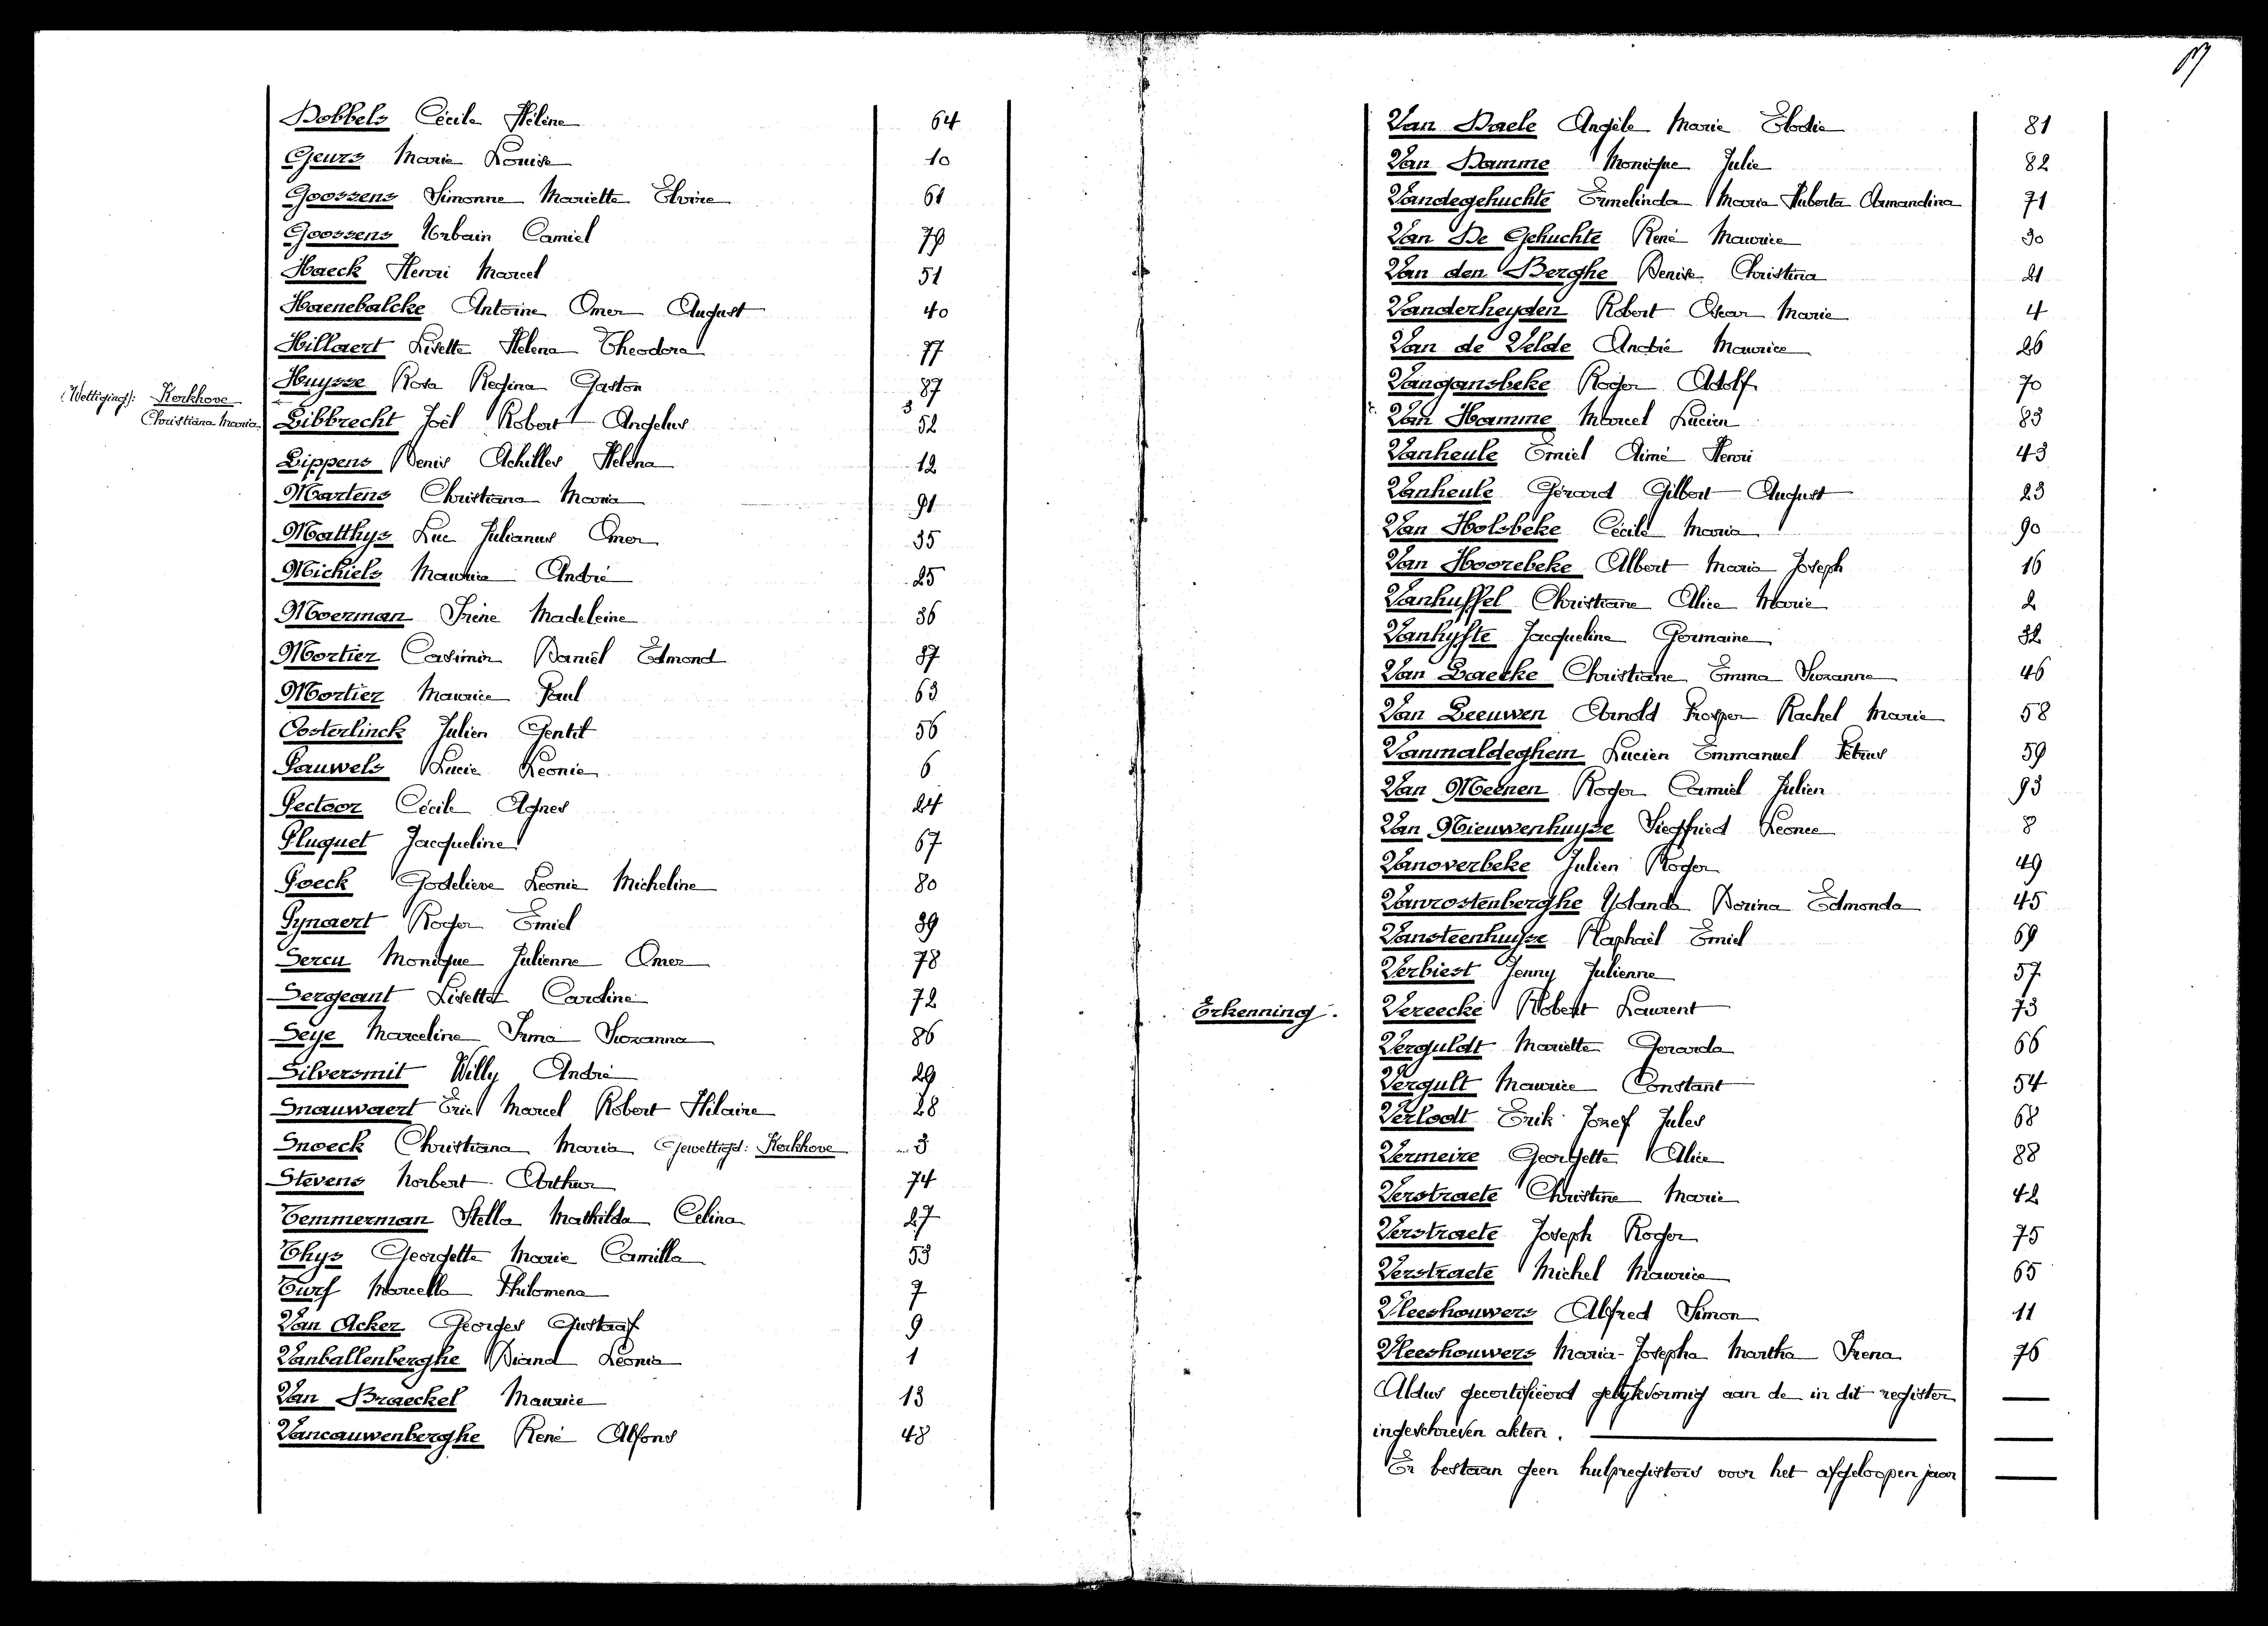 Dobbels Cécile Hélène 64
Geurs Marie Louise 10
Goossens Simonne Mariette Elvire 61
Goossens Urbain Camiel 79
Haeck Henri Marcel 51
Haenebalcke Antoine Omer August 40
Hillaert Lisette Helena Theodora 77
Huysse Rosa Regina Gaston 87
(Wettiging): Kerkhove Christiana Maria 3
Libbrecht Joël Robert Angelus 52
Lippens Denis Achilles Helena 12
Martens Christiana Maria 91
Matthys Luc Julianus Omer 35
Michiels Maurice André 25
Moerman Irène Madeleine 36
Mortier Casimir Daniël Edmond 37
Mortier Maurice Paul 63
Oosterlinck Julien Gentil 56
Pauwels Lucie Leonie 6
Pectoor Cécile Agnes 24
Pluquet Jacqueline 67
Poeck Godelieve Leonie Micheline 80
Pynaert Roger Emiel 39
Sercu Monique Julienne Omer 78
Sergeant Lisette Caroline 72
Seye Marceline Irma Suzanna 86
Silversmit Willy André 29
Snauwaert Eric Marcel Robert Hilaire 28
Snoeck Christiana Maria Gewettigd: Kerkhove 3
Stevens Norbert Arthur 74
Temmerman Stella Mathilda Celina 27
Thys Georgette Marie Camilla 53
Turf Marcella Philomena 7
Van Acker Georges Gustaaf 9
Vanballenberghe Diana Leonia 1
Van Braeckel Maurice 13
Vancauwenberghe René Alfons 48
Van Daele Angèle Marie Elodie 81
Van Damme Monique Julie 82
Vandegehuchte Ermelinda Maria Huberta Armandina 71
Van De Gehuchte René Maurice 30
Van den Berghe Denise Christina 21
Vanderheyden Robert Oscar Marie 4
Van de Velde André Maurice 26
Vangansbeke Roger Adolf 70
Van Hamme Marcel Lucien 83
Vanheule Emiel Aimé Henri 43
Vanheule Gérard Gilbert August 23
Van Holsbeke Cécile Maria 90
Van Hoorebeke Albert Maria Joseph 16
Vanhuffel Christiane Alice Marie 2
Vanhyfte Jacqueline Germaine 32
Van Laecke Christiane Emma Suzanne 46
Van Leeuwen Arnold Prosper Rachel Marie 58
Vanmaldeghem Lucien Emmanuel Petrus 59
Van Meenen Roger Camiel Julien 93
Van Nieuwenhuyse Siegfried Leonce 8
Vanoverbeke Julien Roger 49
Vanrostenberghe Yolanda Dorina Edmonda 45
Vansteenhuyse Raphaël Emiel 69
Verbiest Jenny Julienne 57
Erkenning. Vereecke Robert Laurent 73
Verguldt Mariette Gerarda 66
Vergult Maurice Constant 54
Verlodt Erik Jozef Jules 68
Vermeire Georgette Alice 88
Verstraete Christine Marie 42
Verstraete Joseph Roger 75
Verstraete Michel Maurice 65
Vleeshouwers Alfred Simon 11
Vleeshouwers Maria-Josepha Martha Irena 76
Aldus gecertifieerd gelykvormig aan de in dit register
ingeschreven akten.
Er bestaan geen hulpregisters voor het afgeloopen jaar